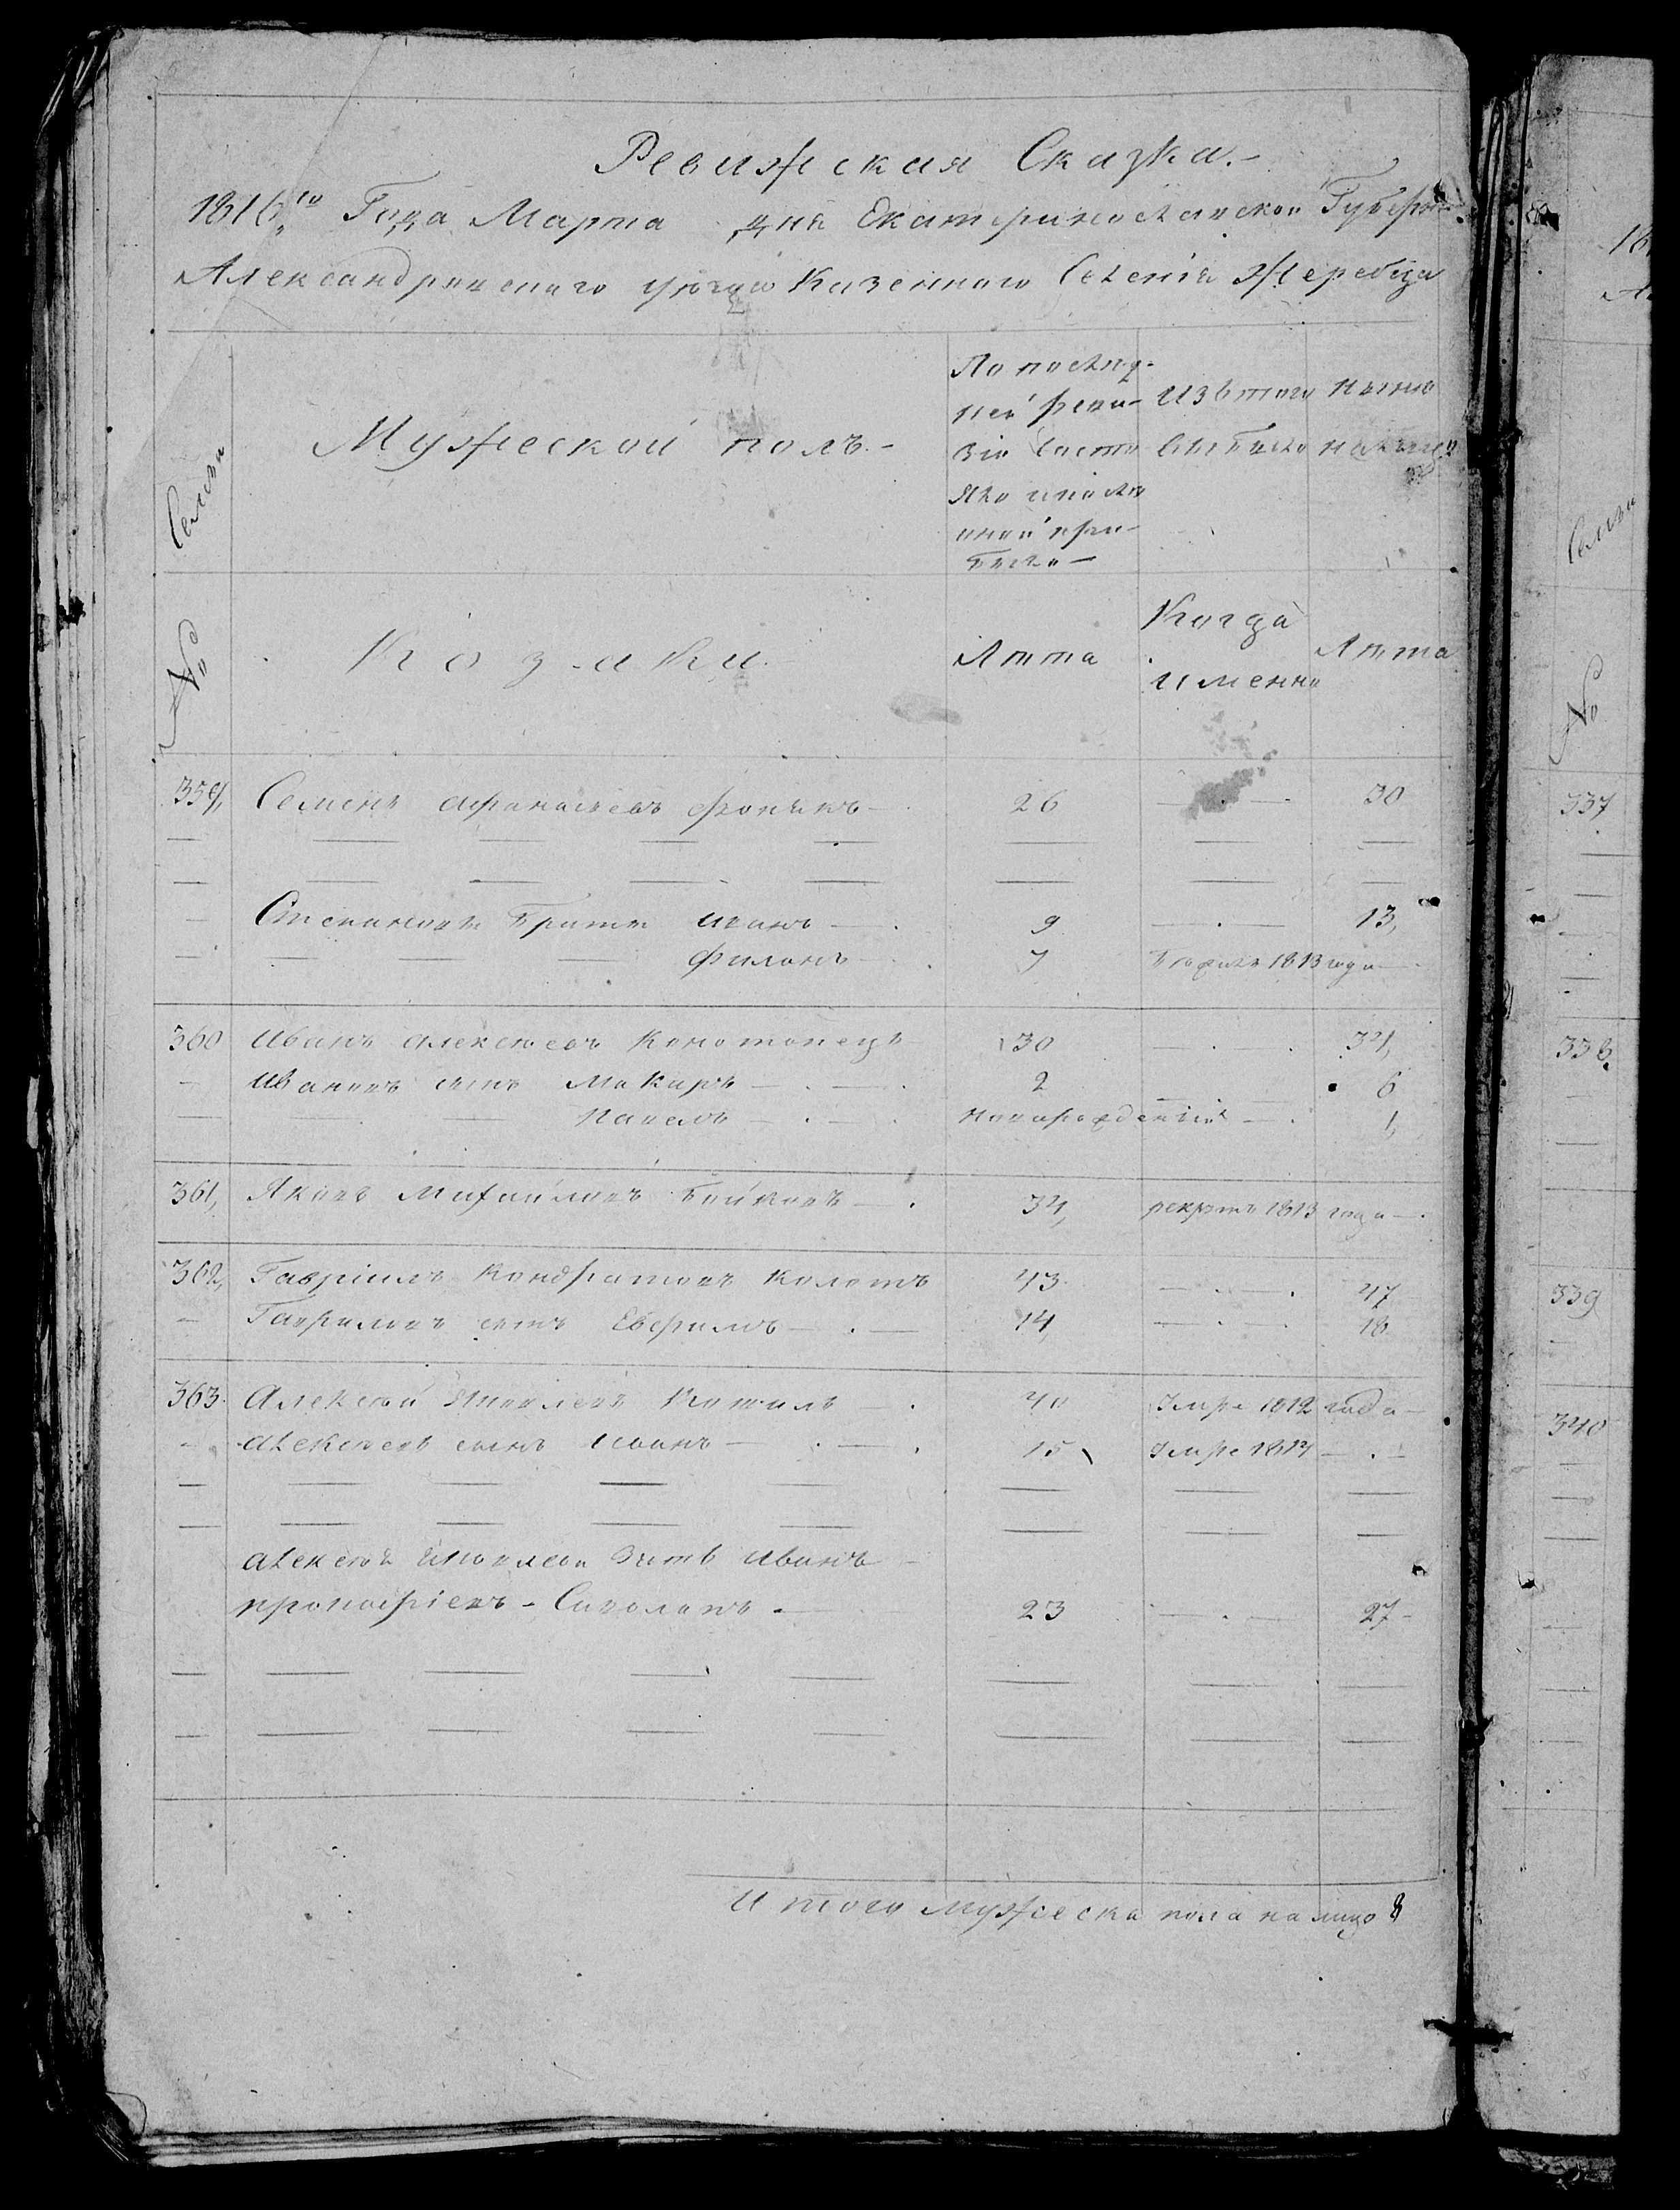 Ревижская Сказка.
1816го Года Марта дня Екатеринославской Губерн:
Александринского уезда Казенного Селения Жеребца
Семьи
Мужеской полъ
По послед-
ней реви-
зіи состо
яло и после
оной при-
было
Изъ того
выбыло
ныне
на лицо
№
Козаки
Лета
Когда
именно
Лета
359, Семенъ Афанасьевъ 26 30
Степановъ братъ Иванъ 9 13,
Филонъ 7 1813 года
360 Иванъ Алексеевъ Конотопецъ 30 34,
Ивановъ сынъ Макаръ 2 6
Павелъ новорожденный 1,
361, Яковъ Михайловъ Бойковъ 34, рекрутъ 1813 года
362, Гавріилъ Кондратовъ 43 47
Гавриловъ сынъ 14, 18
363. Алексей Яковлевъ 40 Умре 1812 года
Алексеевъ сынъ Иванъ 15 Умре 1814
Алексея Яковлева зять Иванъ
23 27
Итого мужеска пола на лицо 8
18
А
Семьи
№
337
338,
339
340